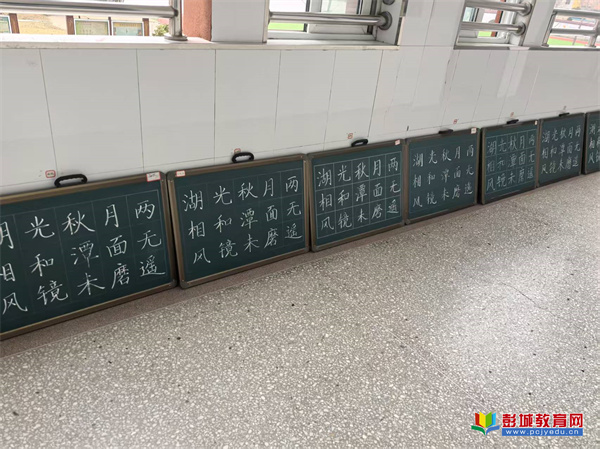 湖光秋月两
相和潭面无
风镜未磨遥
湖光秋月两
相和潭面无
风镜未磨遥
湖光秋月两
相和潭面无
风镜未磨遥
湖光秋月两
相和潭面无
风镜未磨遥
湖光秋月两
相和潭面无
风镜未磨遥
湖光秋月两
相和潭面无
风镜未磨遥
彭城教育网
www.pcjyedu.cn